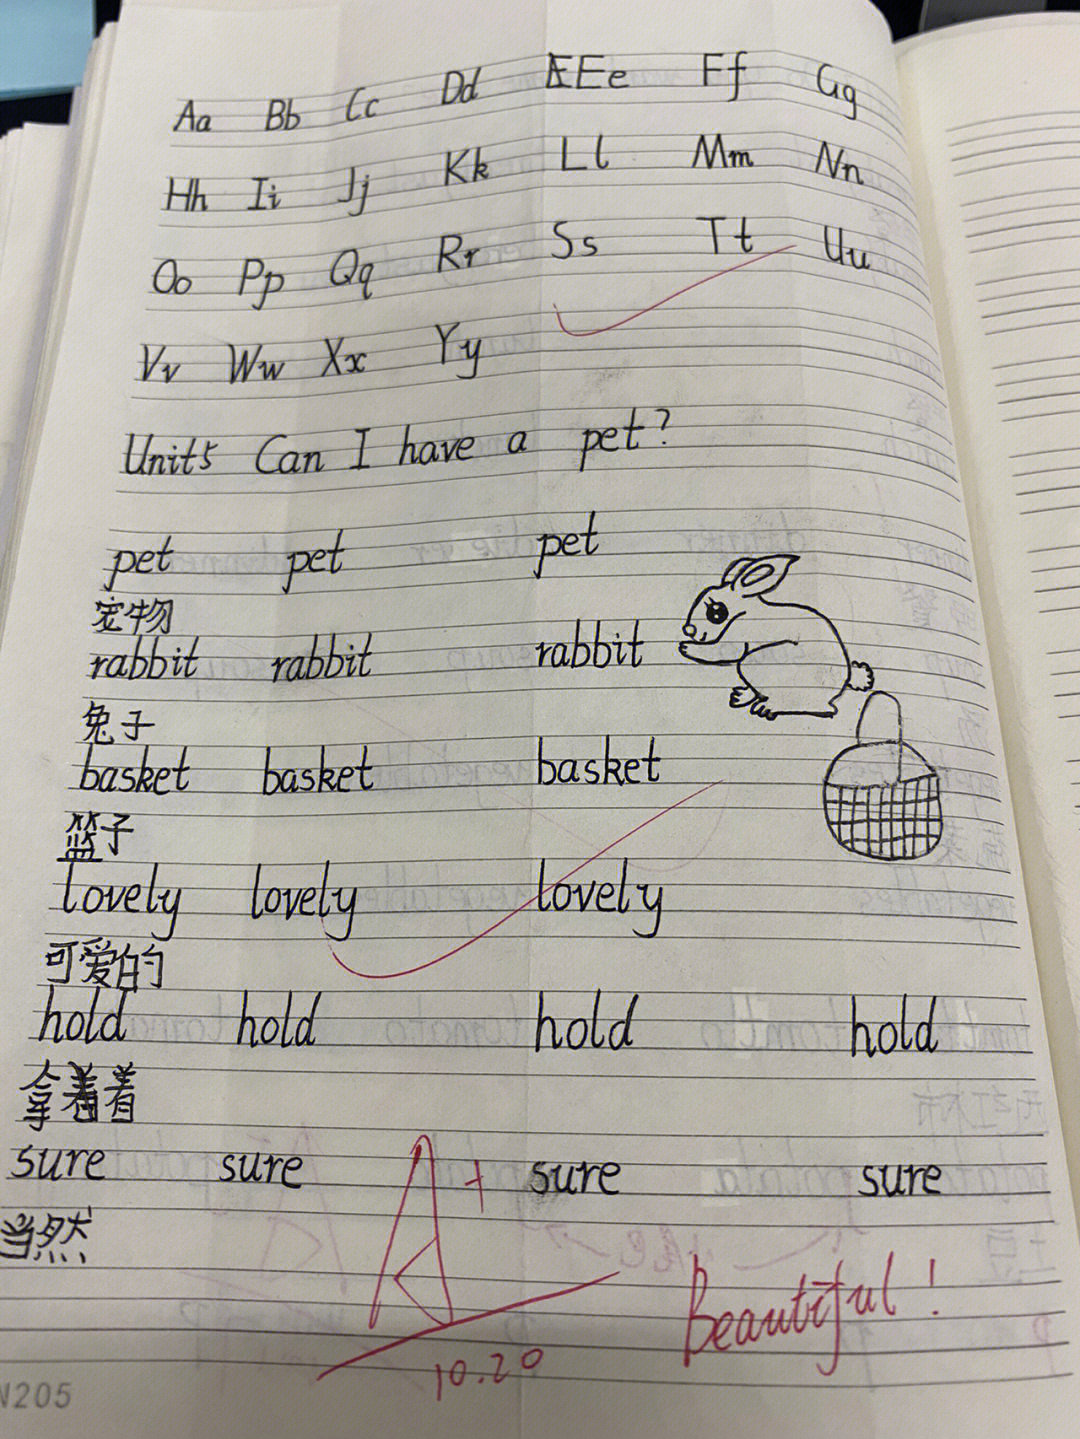 Aa Bb Cc Dd EEe Ff Gg
Hh Ii Jj Kk Ll Mm Nn
Oo Pp Qq Rr Ss Tt Uu
Vv Ww Xx Yy
Unit5 Can I have a pet?
pet pet pet
宠物
rabbit rabbit rabbit
兔子
basket basket basket
篮子
lovely lovely lovely
可爱的
hold hold hold hold
拿着着
sure sure sure sure
当然
A+
Beautiful!
10.20
N205